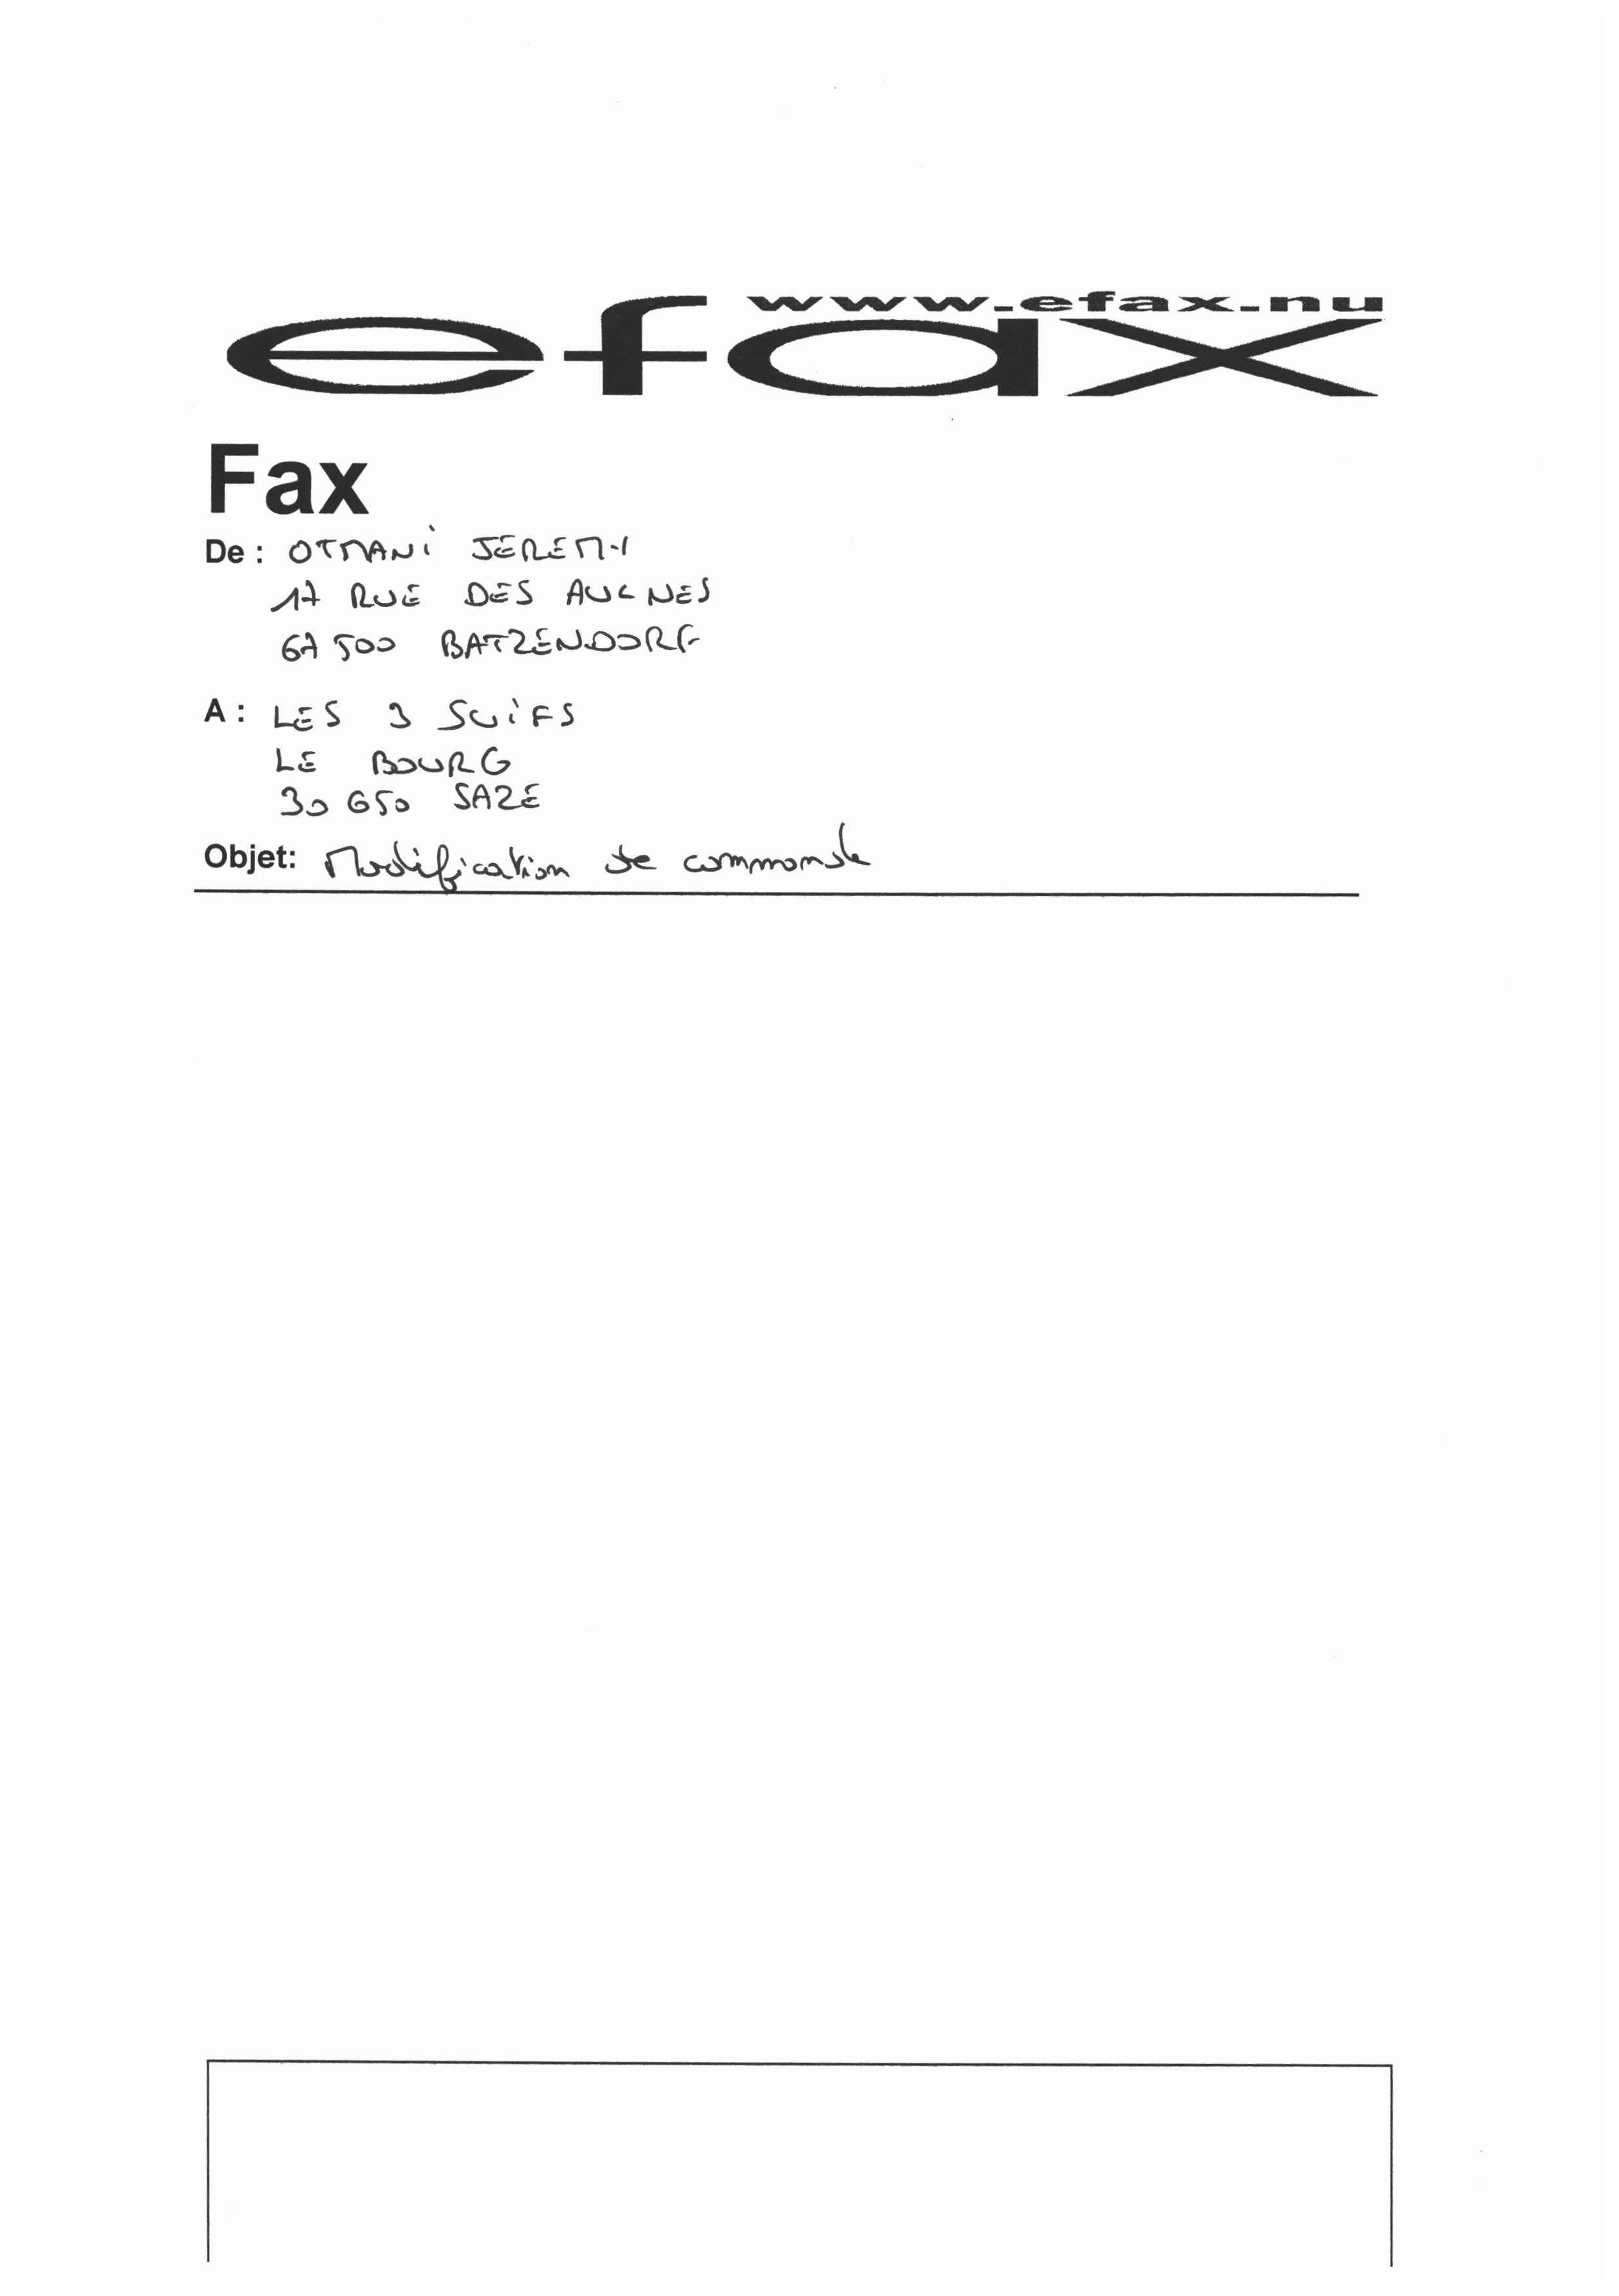 www.efax.nu
efax
Fax
De : OTMANI JEREMY
17 RUE DES AULNES
67500 BATZENDORF
A : LES 3 SUIFS
LE BOURG
30650 SAZE
Objet: Modification de commande